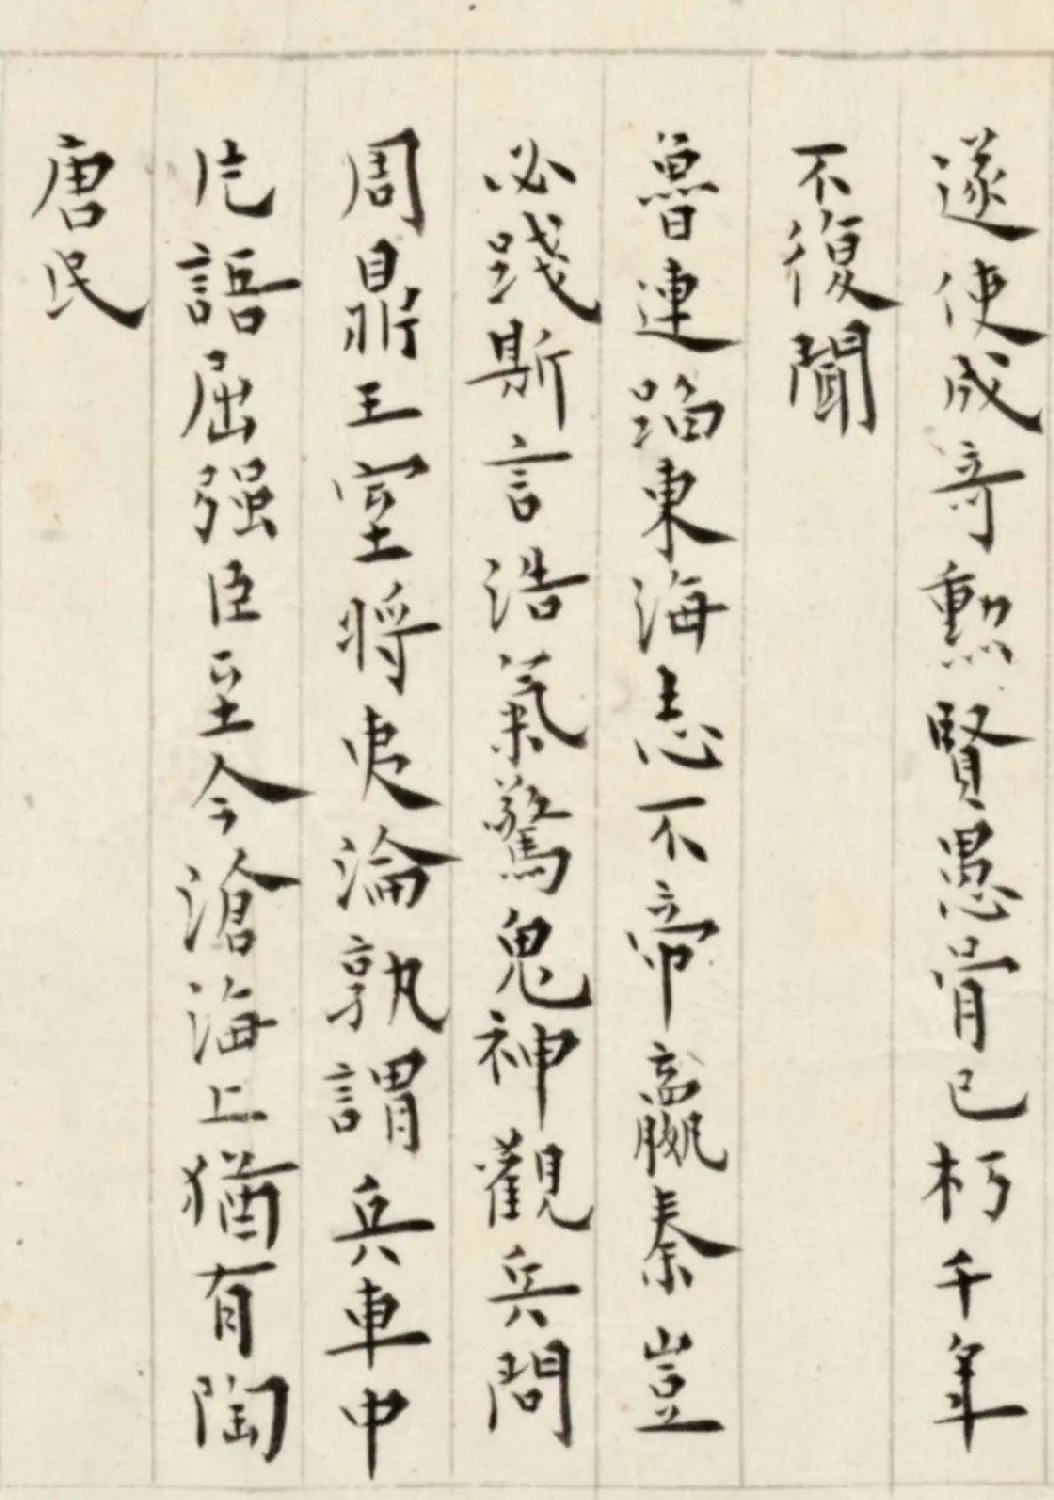 遂使成奇勲賢愚骨已朽千年
不復聞
魯連蹈東海志不帝嬴秦豈
必踐斯言浩氣驚鬼神觀兵問
周鼎王室將夷淪孰謂兵車中
片語屈强臣至今滄海上猶有陶
唐民